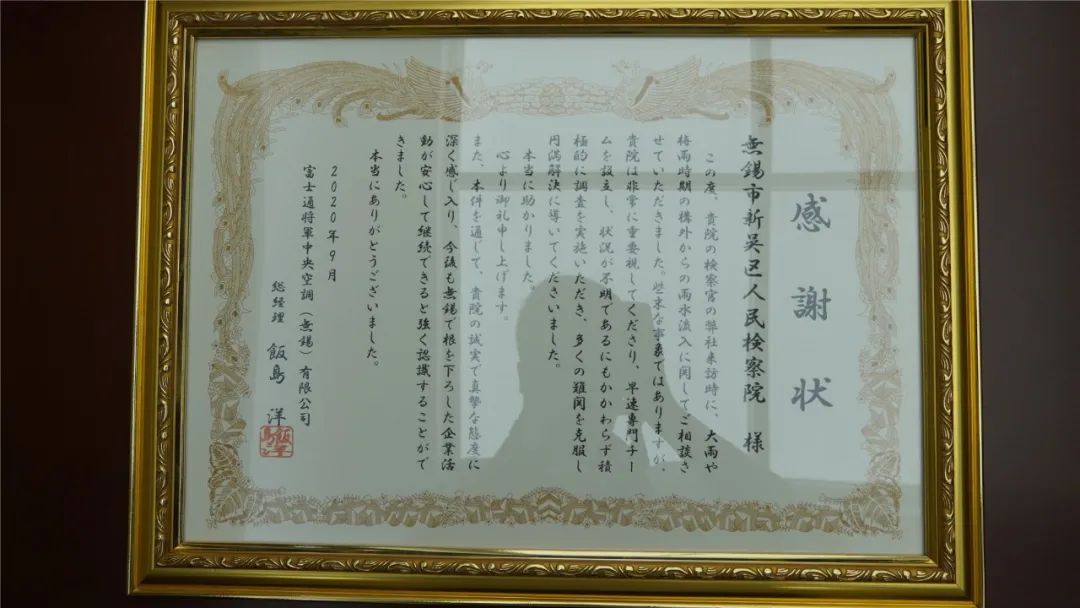 感謝状
無錫市新吳区人民検察院 様
この度、貴院の検察官の弊社来訪時に、大雨や
梅雨時期の構外からの雨水流入に関してご相談さ
せていただきました。些末な事象ではありますが、
貴院は非常に重要視してくださり、早速専門チー
ムを設立し、状況が不明であるにもかかわらず積
極的に調査を実施いただき、多くの難関を克服し
円満解決に導いてくださいました。
本当に助かりました。
心より御礼申し上げます。
また、本件を通じて、貴院の誠実で真摯な態度に
深く感じ入り、今後も無錫で根を下ろした企業活
動が安心して継続できると強く認識することがで
きました。
本当にありがとうございました。
2020年9月
富士通将軍中央空調（無錫）有限公司
総経理 飯島 洋